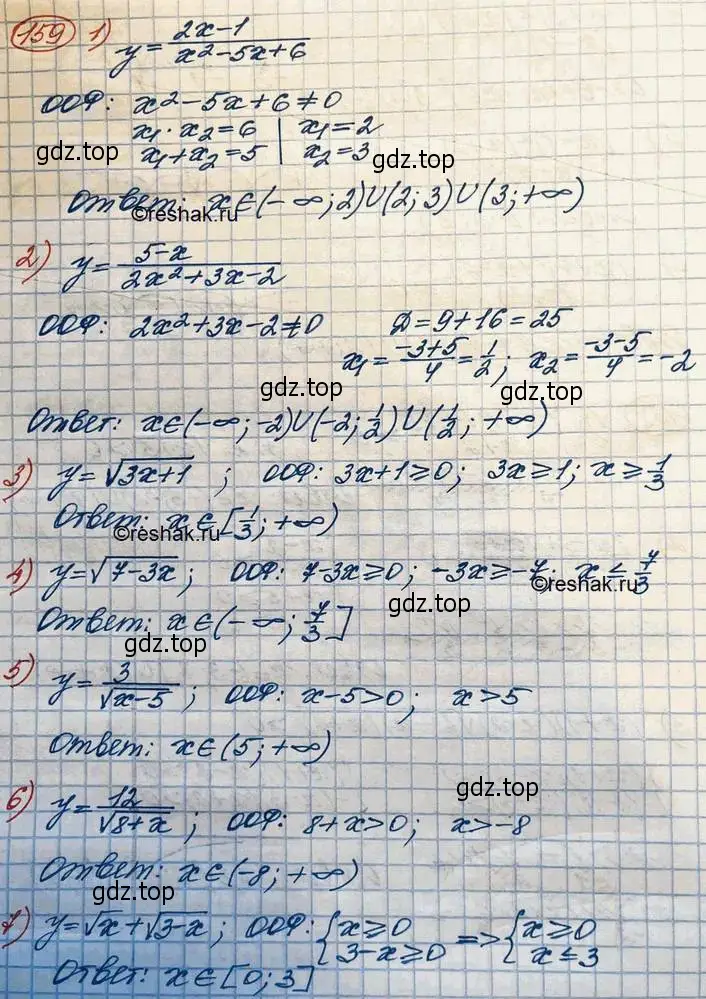 159 1) y = (2x-1)/(x²-5x+6)
ООФ: x²-5x+6≠0
x₁·x₂=6 | x₁=2
gdz.top x₁+x₂=5 | x₂=3 gdz.top
Ответ: x∈(-∞; 2)∪(2; 3)∪(3; +∞)
©reshak.ru
2) y = (5-x)/(2x²+3x-2)
ООФ: 2x²+3x-2≠0 Д=9+16=25
x₁=(-3+5)/4=1/2; x₂=(-3-5)/4=-2
gdz.top gdz.top
Ответ: x∈(-∞; -2)∪(-2; 1/2)∪(1/2; +∞)
3) y=√(3x+1) ; ООФ: 3x+1≥0; 3x≥1; x≥1/3
Ответ: x∈[1/3; +∞)
©reshak.ru
4) y=√(7-3x); ООФ: 7-3x≥0; -3x≥-7; x≤7/3
©reshak.ru
gdz.top
Ответ: x∈(-∞; 7/3]
gdz.top
5) y=3/√(x-5); ООФ: x-5>0; x>5
Ответ: x∈(5; +∞)
gdz.top
6) y=12/√(8+x); ООФ: 8+x>0; x>-8
Ответ: x∈(-8; +∞)
gdz.top
7) y=√x+√(3-x); ООФ: {x≥0 3-x≥0 => {x≥0 x≤3
Ответ: x∈[0; 3]